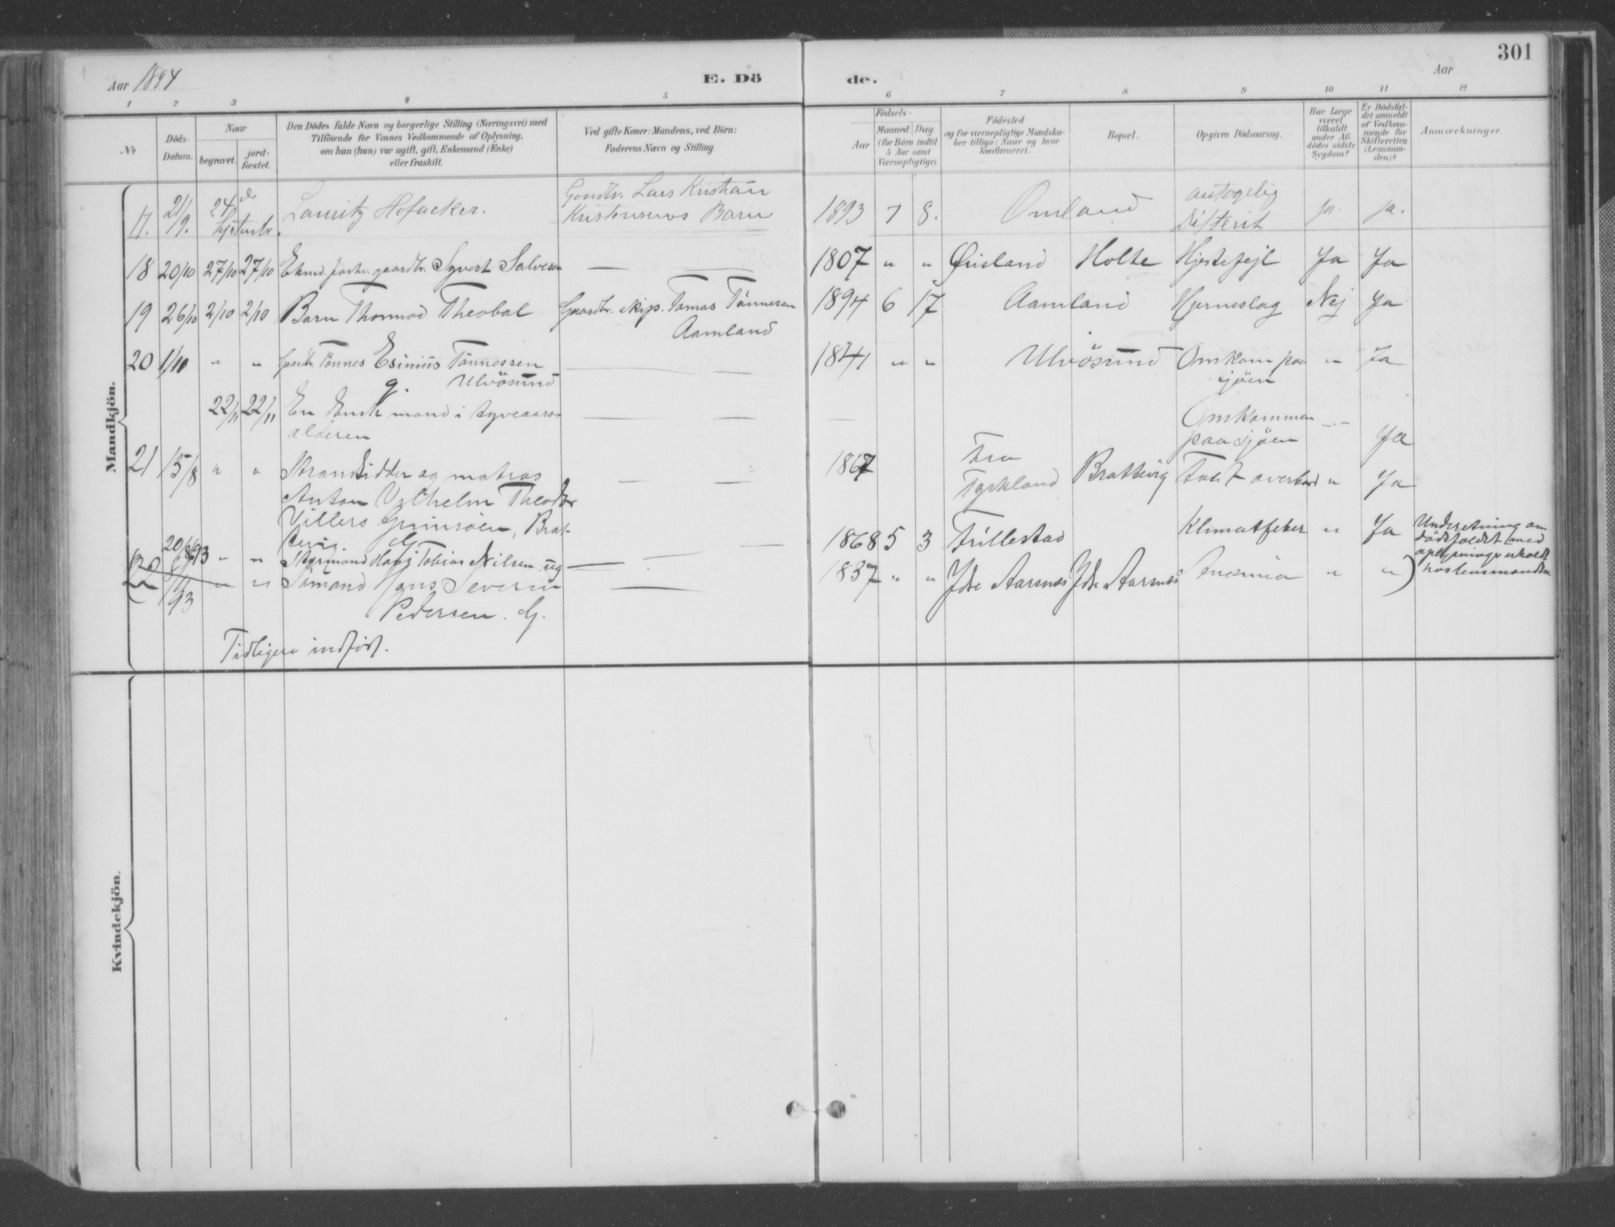 301
Aar 1894 E. Döde. Aar
1 2 3 4 5 6 7 8 9 10 11 12
No
Döds-Datum.
Naar
begravet. jord-fæstet.
Den Dödes fulde Navn og borgerlige Stilling (Næringsvei) med
Tilföiende for Voxnes Vedkommende af Oplysning,
om han (hun) var ugift, gift, Enkemand (Enke)
eller fraskilt.
Ved gifte Koner: Mandens, ved Börn:
Faderens Navn og Stilling.
Födsels-
Aar
Maaned Dag
(for Börn indtil
5 Aar samt
Værnepligtige).
Födested
og for værnepligtige Mandska-
ber tillige: Naar og hvor
konfirmeret.
Bopæl.
Opgiven Dödsaarsag.
Har Læge
været
tilkaldt
under Af-
dödes sidste
Sygdom?
Er Dödsfal-
det anmeldt
af Vedkom-
mende for
Skifteretten
(Lensman-
den)?
Anmærkninger.
Mandkjön.
17. 21/9. 24/9 Lauritz Hofacker. Gaardbr. Lars Kristian
Kristensens Barn 1893 7 8. Omland antagelig
Difterit ja. ja.
18 20/10 27/10 27/10 Ekmd. forhv. gaardbr. Syvert Salvesen — — 1807 " " Øisland Holte Hjertefejl Ja Ja
19 26/10 2/10 2/10 Barn Thormod Theobal Gaardbr. skip. Tomas Tönnesen
Aamland 1894 6 17 Aamland Hjerneslag Nej Ja
20 1/11 " " Tönnes Esinius Tönnessen
g. Ulvösund — — 1841 " " Ulvösund Omkom paa
sjöen " Ja
22/11 22/11 En dansk mand i tyveaars-
alderen — — — Omkommen
paa sjöen Ja
21 15/8 " " Strandsidder og matros
Anton Vylhelm Theodor
Villers Grimsöen, Brat-
tevig. G — — 1867 Fra
Tyskland Brattevig Faldt overbord " Ja
20/6 93 " " Styrmand Tobias Nilsen. ug — — 1868 5 3 Trillestad Klimatfeber " Ja Underretning om
dödsfaldet med
oplysninger erholdt
hos lensmanden
22 93 " " Sömand Jens Severin
Pedersen. G. — — 1837 " " Ytre Aarsnes Ytre Aarsnes Anæmia " "
Tidligere indfört.
Kvindekjön.